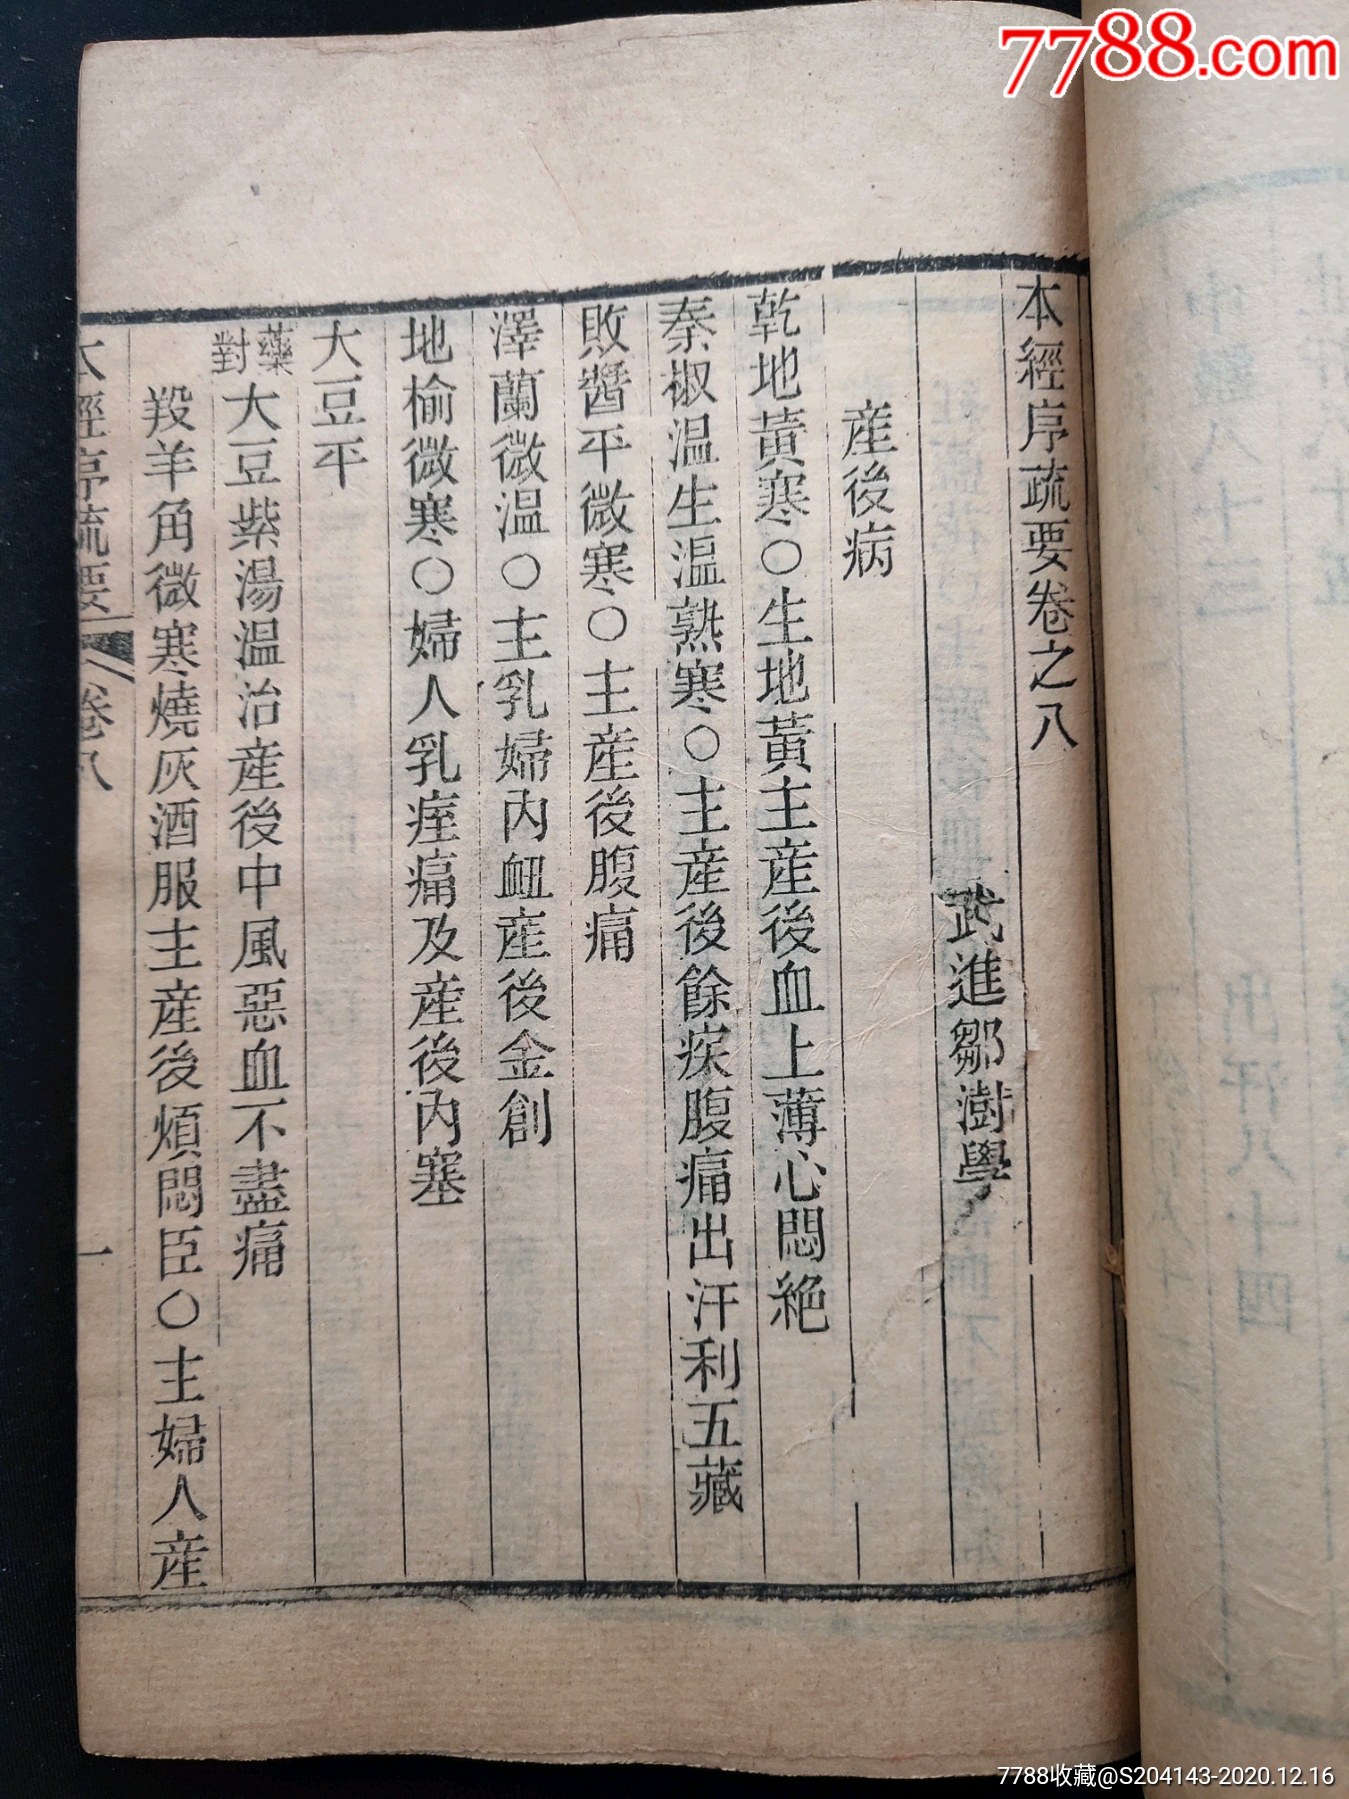 7788.com
本經序疏要卷之八
武進鄒澍學
產後病
乾地黃寒○生地黃主產後血上薄心悶絕
秦椒溫生溫熟寒○主產後餘疾腹痛出汗利五藏
敗醬平微寒○主產後腹痛
澤蘭微溫○主乳婦內衄產後金創
地榆微寒○婦人乳痓痛及產後內塞
大豆平
藥對大豆紫湯溫治產後中風惡血不盡痛
羖羊角微寒燒灰酒服主產後煩悶臣○主婦人產
本經序疏要 卷八 一
7788收藏@S204143-2020.12.16